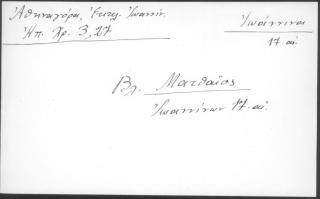 Ἀθηναγόρα, Ἐπετ. Ἰωαννίν.
Ἠπ. Χρ. 3, 27
Ἰωάννινα
17. αἰ.
Βλ. Ματθαῖος
Ἰωαννίνων 17. αἰ.